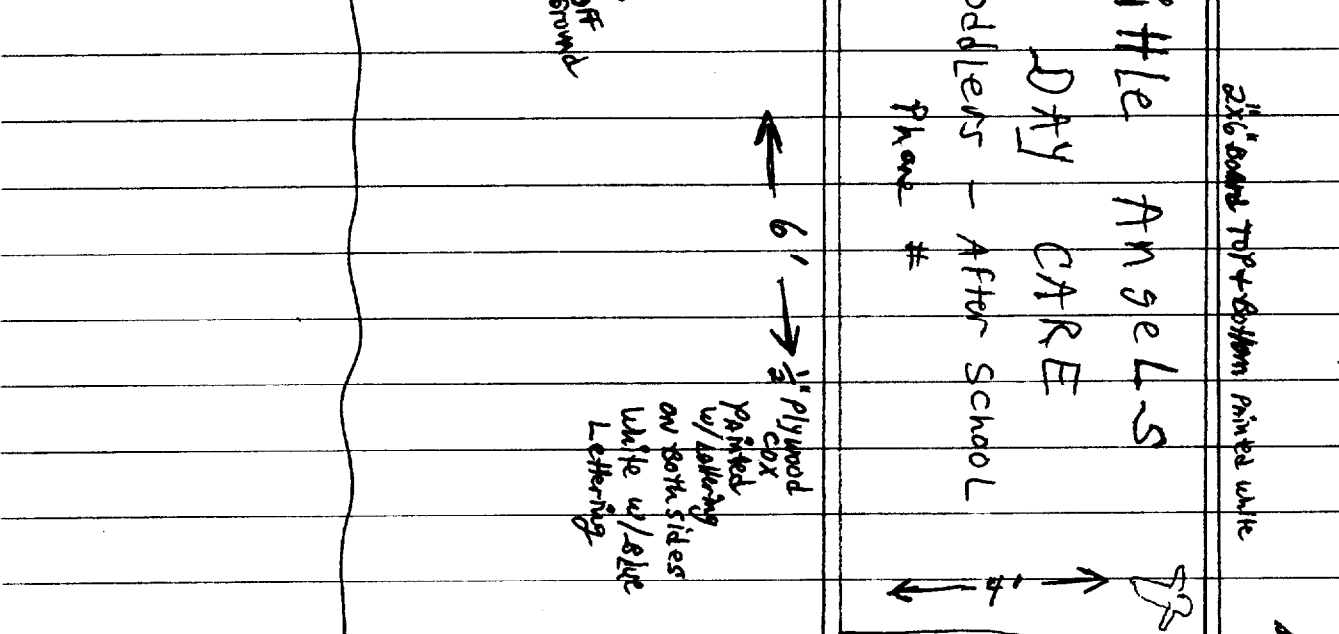 2"x6" Board Top + Bottom painted white
ittLe AngeLS
DAy CARE
oddLers - After SchooL
Phone #
4'
6'
½" plywood
CDX
painted
w/ Lettering
on Both sides
white w/ Blue
Lettering
off
Ground